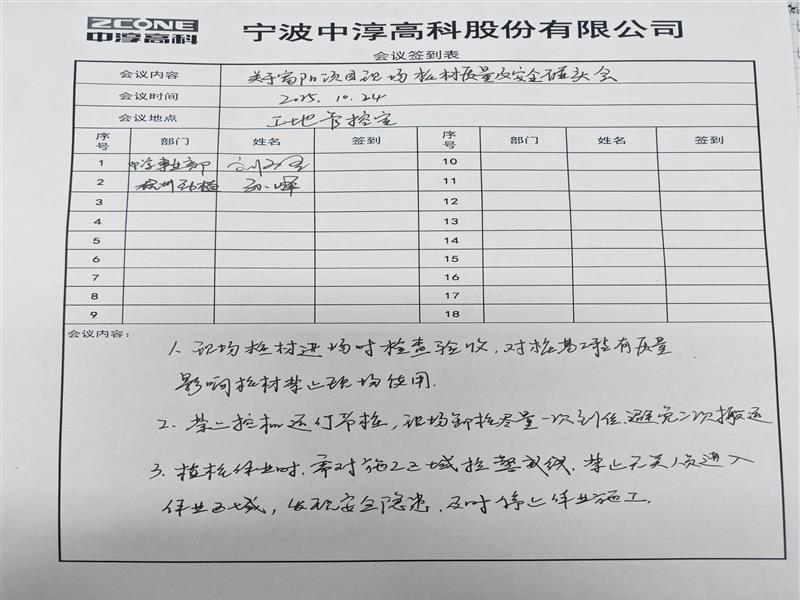 ZCONE
中淳高科
宁波中淳高科股份有限公司
会议签到表
会议内容 关于富阳项目现场桩材质量及安全碰头会
会议时间 2025.10.24
会议地点 工地管控室
序号 部门 姓名 签到 序号 部门 姓名 签到
1 中淳事业部 10
2 杭州 孙峰 11
3 12
4 13
5 14
6 15
7 16
8 17
9 18
会议内容:
1. 现场桩材进场时检查验收,对桩基工程有质量
影响桩材禁止现场使用.
2. 禁止挖机运打节桩,现场卸桩尽量一次到位,避免二次搬运
3. 植桩作业时,需对施工区域拉警戒线,禁止无关人员进入
作业区域,发现安全隐患,及时停止作业施工.